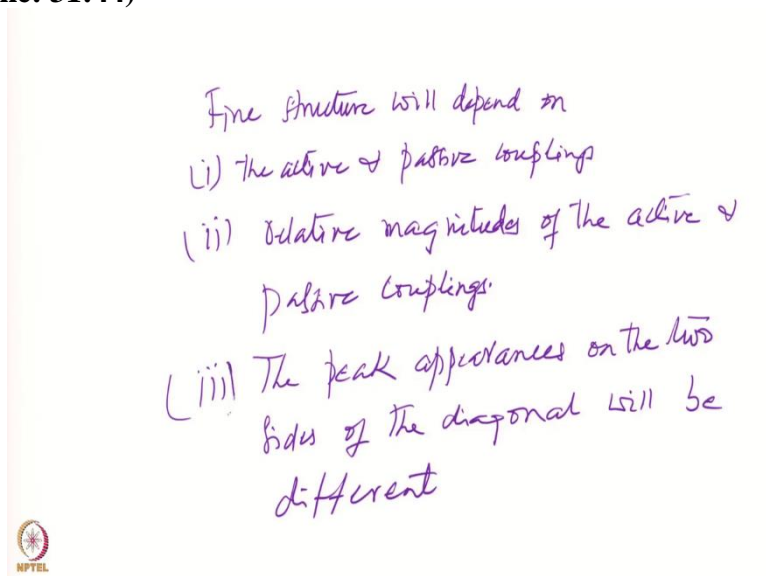 31:44)
Fine structure will depend on
(i) The active & passive couplings
(ii) relative magnitudes of the active &
passive couplings.
(iii) The peak appearances on the two
sides of the diagonal will be
different
NPTEL